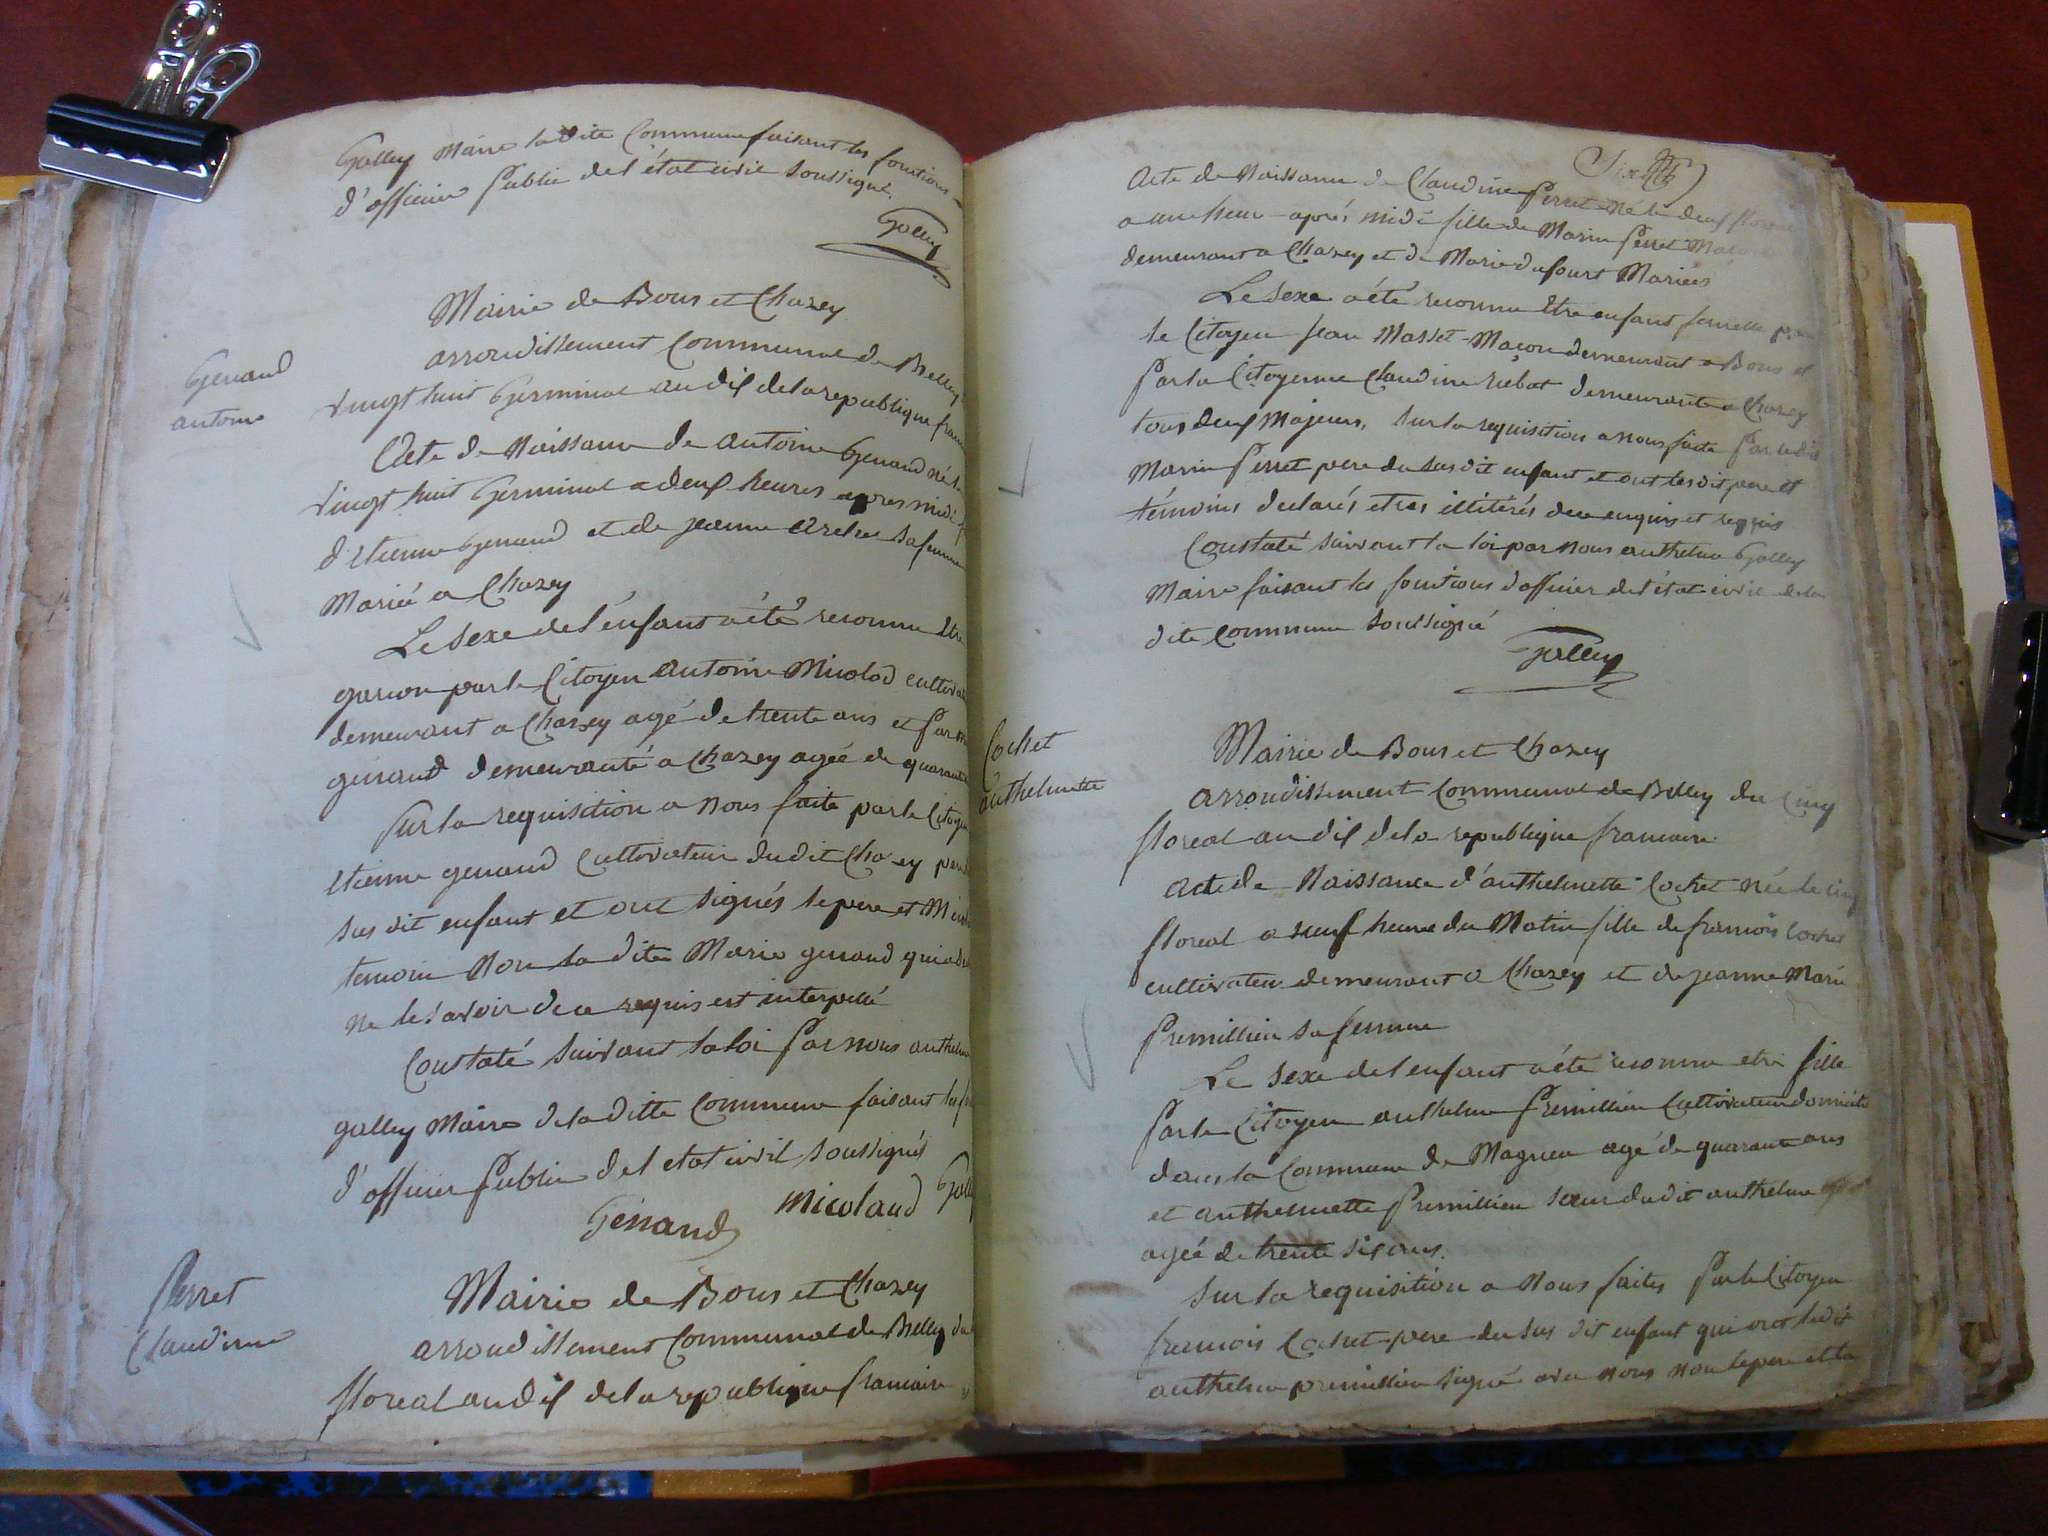 Galley Maire la dite Commune faisant les fonctions
d'officier public de l'état civil soussigné.
Galley
Mairie de Bons et Chazey
arrondissement Communal de Belley
Genand
antoine
vingt huit Germinal an dix de la republique franc
Acte de Naissance de antoine Genand né le
vingt huit Germinal a deux heures apres midi
d'Etienne Genand et de jeanne sa femme
Marié a Chazey
Le sexe de l'enfant a été reconnu Etre
garcon par le Citoyen antoine Micolod cultivat
demeurant a Chazey agé de trente ans et par
genand demeurante a Chazey agée de quarante
Sur la requisition a nous faite par le Citoyen
Etienne genand Cultivateur dudit Chazey pere
sus dit enfant et ont signés le pere et Micol
temoin Non la dite Marie genand qui a
ne le savoir de ce requis est interpellé
Constaté suivant la loi par nous anthelme
galley Maire de la ditte Commune faisant les
d'officier public de l'etat civil soussignés
Genand Micolaud Gall
Perret
Claudine
Mairie de Bons et Chazey
arrondissement Communal de Belley du
floreal an dix de la republique francaise
Acte de Naissance de Claudine Perret Née le deux floreal
a une heure après midi fille de Marin Perret Macon
demeurant a Chazey et de Marie dufourt Mariés
Le sexe a été reconnu Etre enfant femelle par
le Citoyen Jean Masset Maçon demeurant a Bons et
par la Citoyenne Claudine rubat demeurante a Chazey
tous deux Majeurs, sur la requisition a nous faite par ledit
Marin Perret pere du susdit enfant et ont lesdit pere et
témoins declarés etres illitérés de ce enquis et requis
Constaté suivant la loi par nous anthelme Galley
Maire faisant les fonctions d'officier de l'état civil de la
dite Commune soussigné
Galley
Cochet
anthelmette
Mairie de Bons et Chazey
arrondissement Communal de Belley du Cinq
floreal an dix de la republique francaise.
acte de Naissance d'anthelmette Cochet Née le cinq
floreal a neuf heure du Matin fille de francois Cochet
cultivateur demeurant a Chazey et de jeanne Marie
Premillieu sa femme
Le sexe de l'enfant a été reconnu etre fille
par le Citoyen anthelme Premillieu Cultivateur domicilié
dans la Commune de Magnieu agé de quarante ans
et anthelmette Premillieu soeur dudit anthelme
agée de trente six ans.
Sur la requisition a Nous faites par le Citoyen
francois Cochet pere du sus dit enfant qui ont ledit
anthelme premillieu signé avec nous non le pere et la